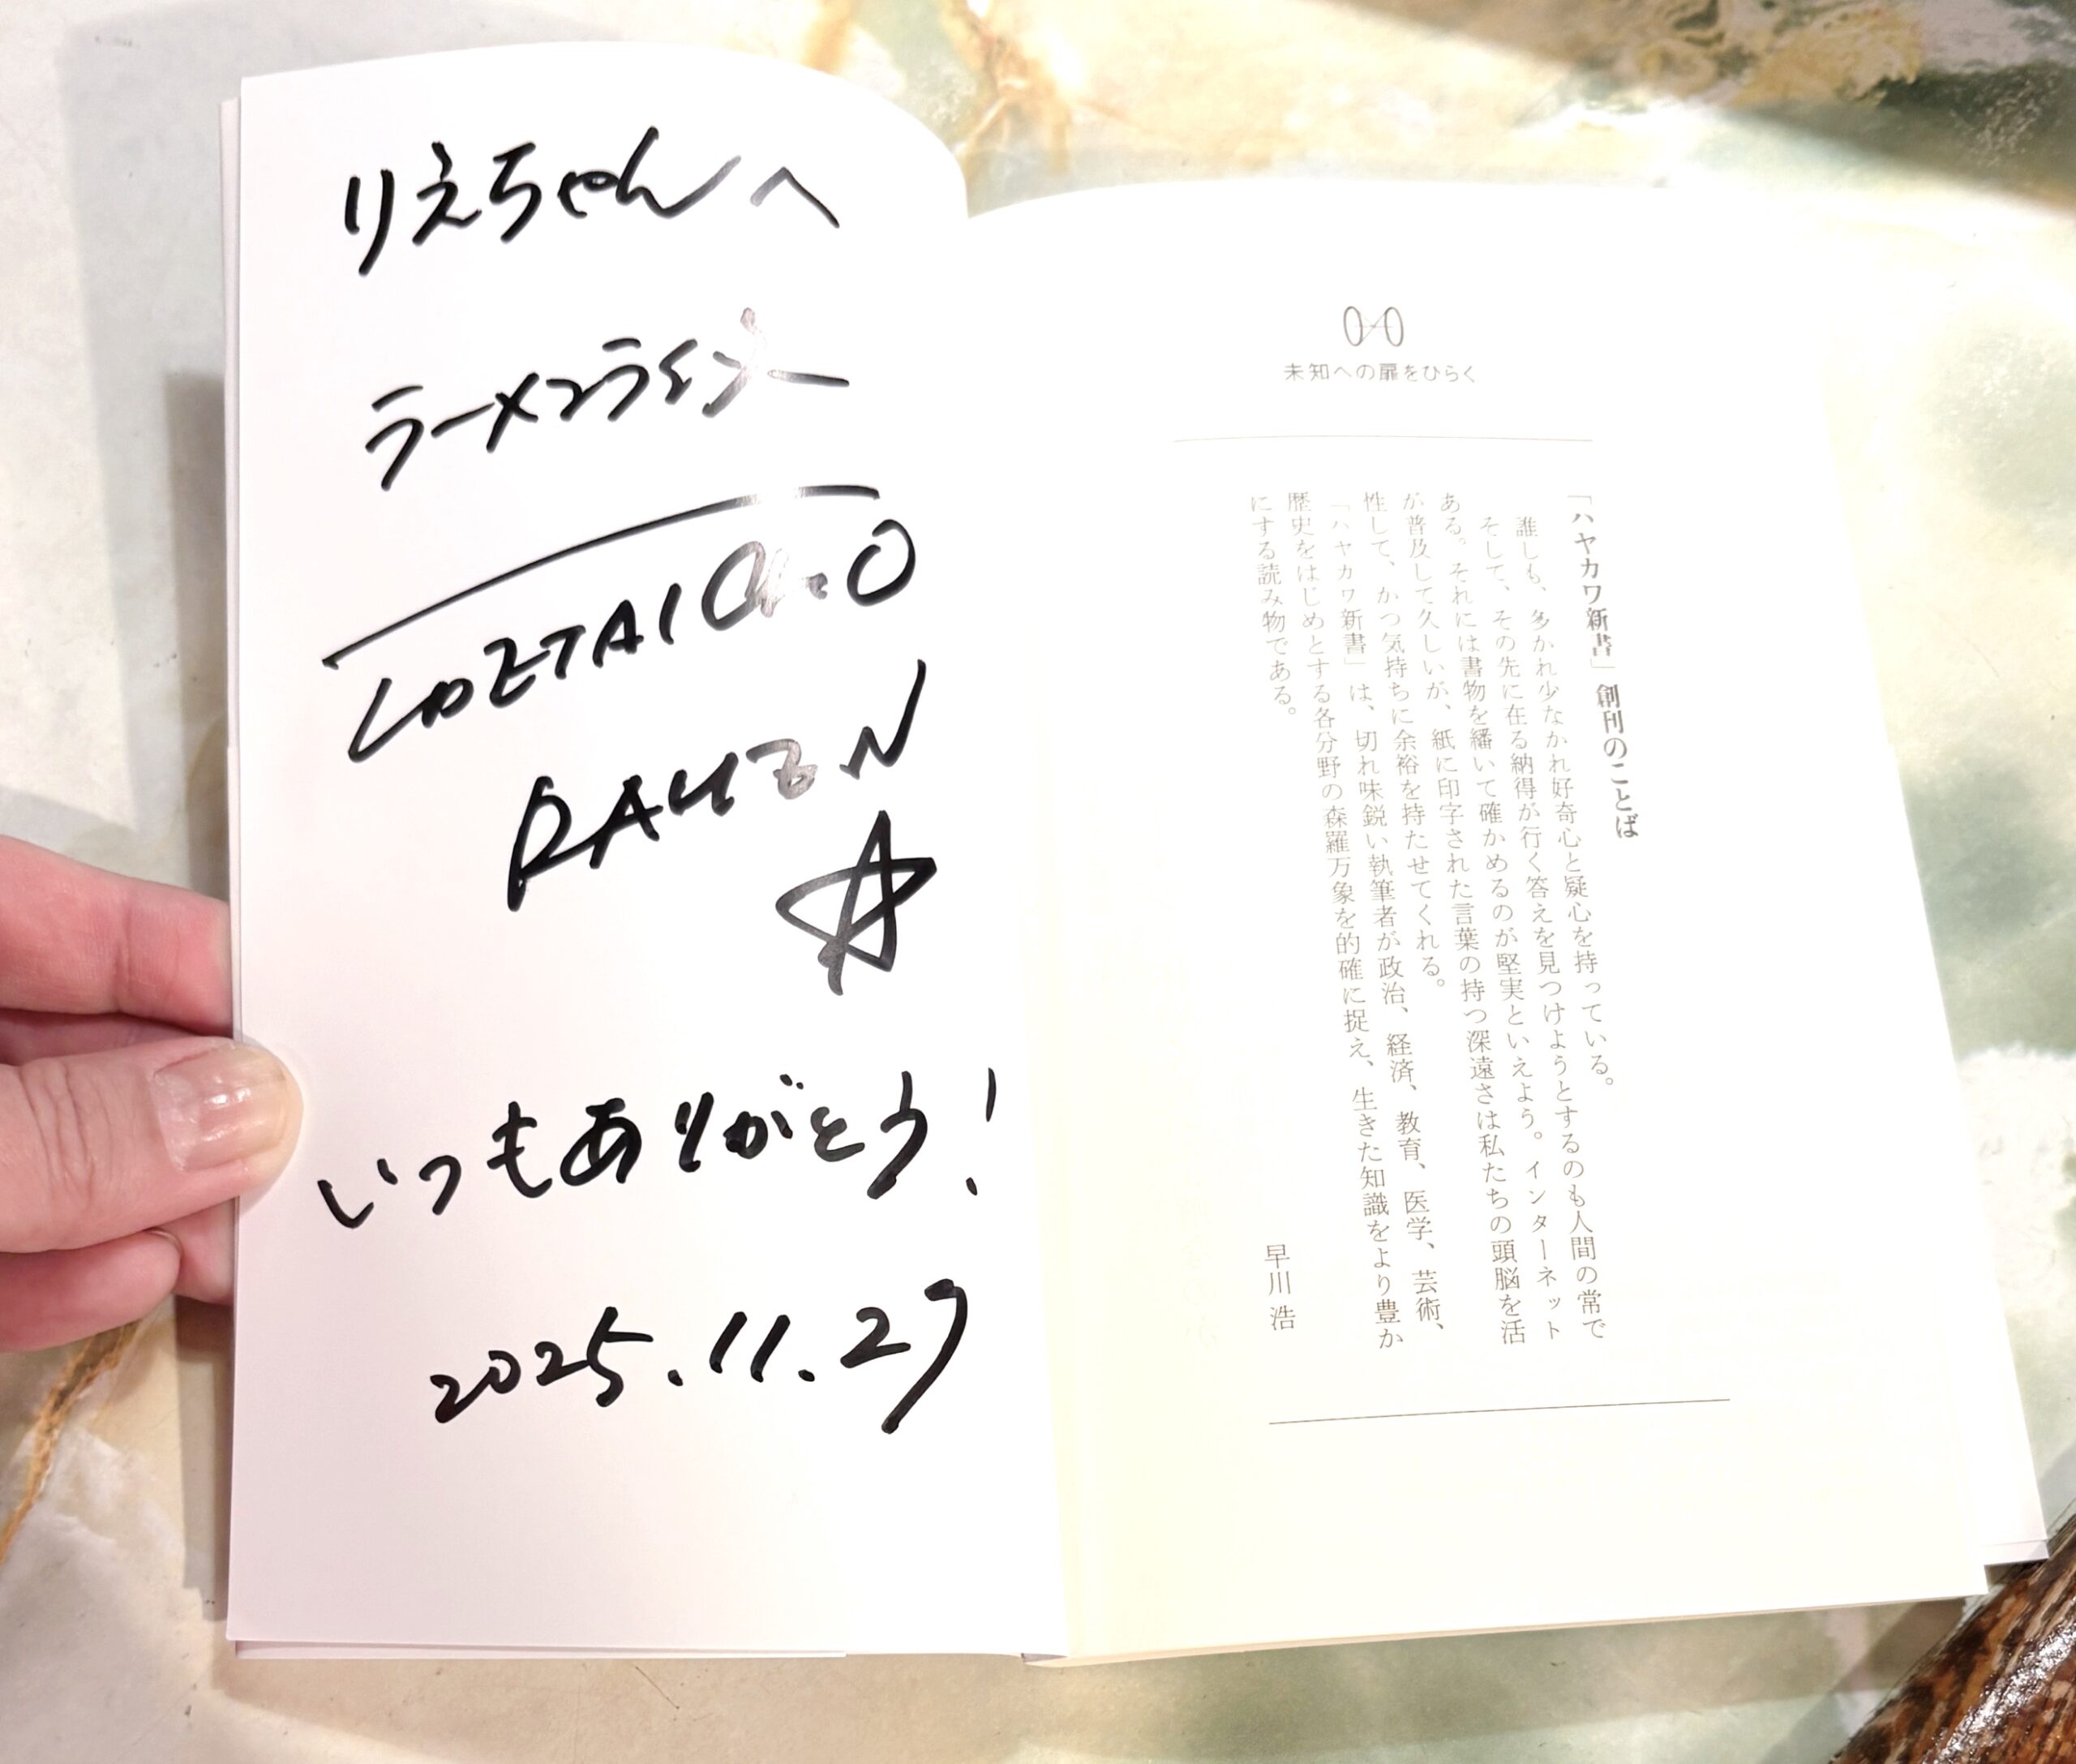 りえちゃんへ
ラーメンライター
IDETAICHO
RAMEN
いつもありがとう!
2025.11.27
未知への扉をひらく
「ハヤカワ新書」創刊のことば
誰しも、多かれ少なかれ好奇心と疑心を持っている。
そして、その先に在る納得が行く答えを見つけようとするのも人間の常で
ある。それには書物を繙いて確かめるのが堅実といえよう。インターネット
が普及して久しいが、紙に印字された言葉の持つ深遠さは私たちの頭脳を活
性して、かつ気持ちに余裕を持たせてくれる。
「ハヤカワ新書」は、切れ味鋭い執筆者が政治、経済、教育、医学、芸術、
歴史をはじめとする各分野の森羅万象を的確に捉え、生きた知識をより豊か
にする読み物である。
早川 浩